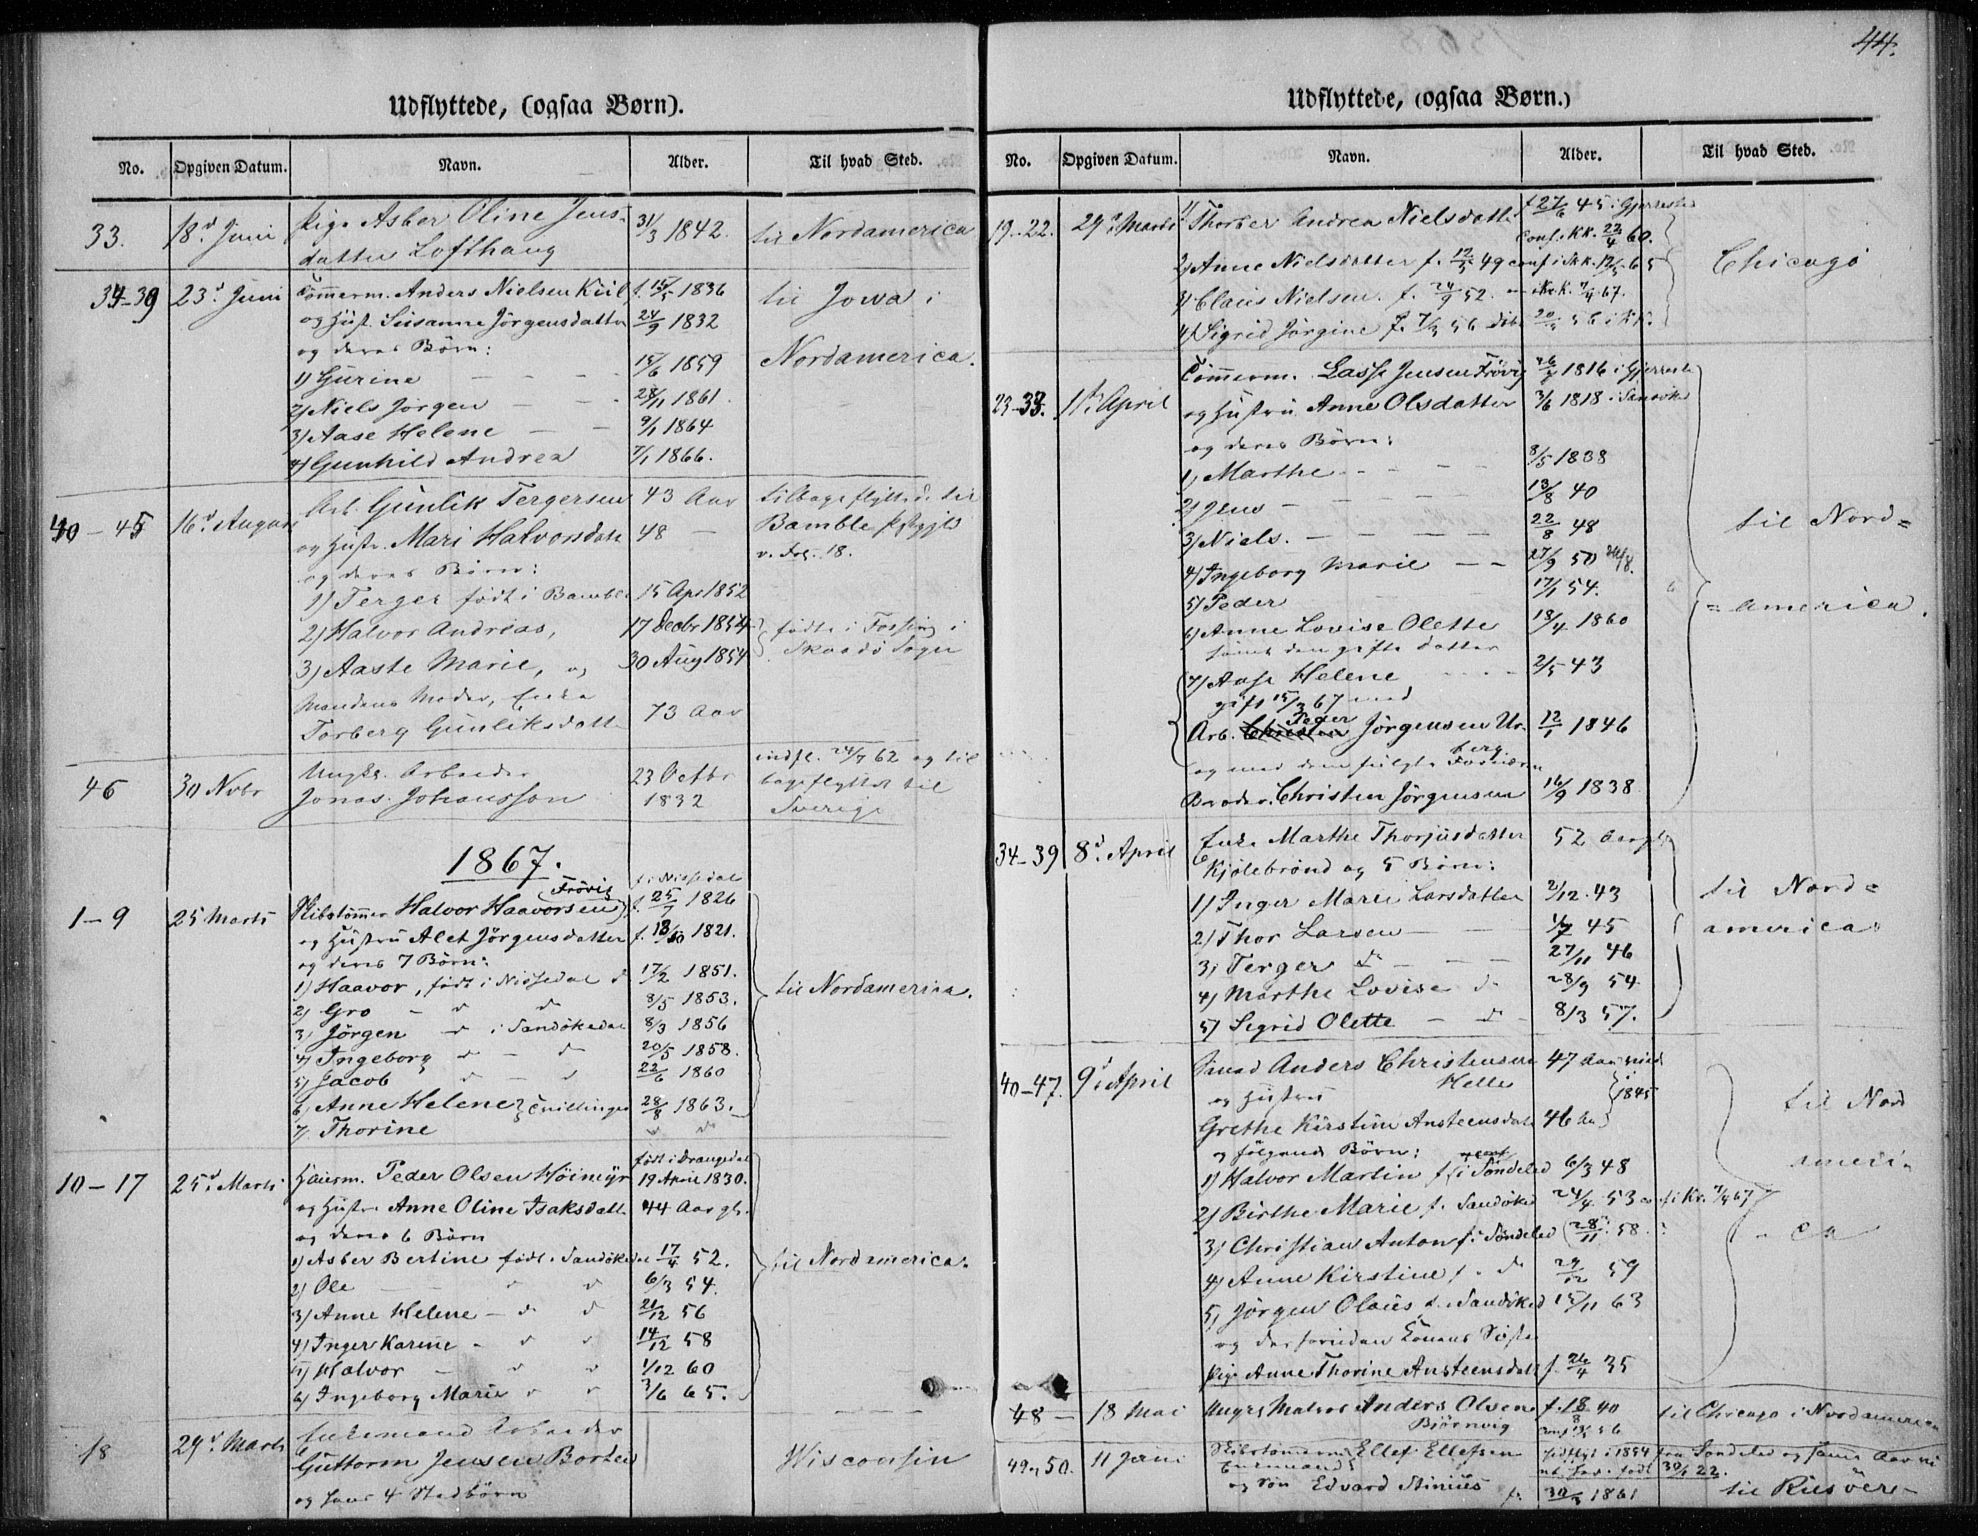 44.
Udflyttede, (ogsaa Børn).
No. Opgiven Datum. Navn. Alder. Til hvad Sted.
33. 18d Juni Pige Asber Oline Jens- 31/3 1842. til Nordamerica
datter Lofthaug
34-39 23d Juni Tømmerm. Anders Nielsen Kiil f. 15/5 1836 til Jowa i
og Hust. Susanne Jørgensdatter 24/9 1832
og deres Børn: Nordamerica.
1) Gurine 15/6 1859
2) Niels Jørgen 28/11 1861.
3) Aase Helene 9/1 1864
4) Gunhild Andrea 7/1 1866.
40-45 16d August Arb. Gunlik Tergersen 43 Aar tilbageflyttede til
og Hustr. Mari Halvorsdatt 48 - Bamble Præstegjeld
og deres Børn: v. Fol. 18.
1) Terger født i Bamble 15 Apr 1852
2) Halvor Andreas, 17 Decbr 1854 fødte i Fossing i
3) Aaste Marie, og 30 Aug 1854 Skaadø Sogn
Mandens Moder, Enke
Torberg Gunliksdatt 73 Aar
46 30 Novbr Ungkr. Arbeider 23 Octbr indfl. 24/7 62 og til
Jonas Johansson 1832 bageflyttet til
Sverige
1867.
f. i Nissedal
1-9 25 Marts Skibstømmer Halvor Haavorsen Frövig f. 25/7 1826
og Hustru Alet Jørgensdatter f. 13/10 1821.
og deres 7 Børn:
1) Haavor, født i Nissedal d 17/2 1851. til Nordamerica.
2) Gro - d d 8/5 1853.
3) Jörgen - d i Sandökedal 8/3 1856
4) Ingeborg d - d 20/5 1858.
5) Jacob d - d 22/6 1860
6) Anne Helene Tvillinger 28/8 1863.
7) Thorine d d
født i Drangedal
10-17 25d Marts Huusm. Peder Olsen Höimyr 19 April 1830.
og Hustr. Anne Oline Isaksdatt 44 Aar gl.
og deres 6 Børn
1) Asber Bertine født i Sandökedal 17/4 52. til Nordamerica.
2) Ole d d 6/3 54.
3) Anne Helene - d d 21/12 56
4) Inger Karine - d d 14/12 58
5) Halvor - d d 1/12 60
6) Ingeborg Marie d d 3/6 65.
18 29d Marts Enkemand Arbeider
Guttorm Jensen Borten Wisconsin
og hans 4 Stedbørn
Udflyttede, (ogsaa Børn.)
No. Opgiven Datum. Navn. Alder. Til hvad Sted.
19-22. 29d Marts 1) Thorber Andrea Nielsdatter f 27/6 45 i Gjerrestad
Conf. KK. 22/4 60.
2) Anne Nielsdatter f. 12/5 49 conf i Skk. 12/5 65 Chicago
3) Claus Nielsen. f. 24/9 52. Kr.K. 7/4 67.
4) Sigrid Jørgine f. 7/3 56 döbt 20/3 56 i KK.
23-33. 1ste April Tømmerm. Lasse Jensen Frövig 26/7 1816 i Gjerrestad
og Hustru Anne Olsdatter 3/6 1818 i Sandöked
og deres Børn:
1) Marthe 8/5 1838
2) Jens 13/8 40
3) Niels. 22/8 48 til Nord=
4) Ingeborg Marie 27/9 50
5) Peder 17/1 54. = america.
6) Anne Lovise Olette 18/4 1860
samt den gifte Datter
7) Aase Helene 2/5 43
gift 15/3 67 med
Arb. Christen Peder Jørgensen Ur- 12/1 1846
berg
og med dem følgte
Broder. Christen Jørgensen 16/9 1838.
34-39 8d April Enke Marthe Thorjusdatter 52 Aar gl.
Kjölebrønd og 5 Børn:
1) Inger Marie Larsdatter 2/12 43 til Nord=
2) Thor Larsen 1/7 45 america.
3) Terger d 27/11 46
4) Marthe Lovise d 28/9 54
5) Sigrid Olette - d 8/3 57.
40-47. 9d April Smed Anders Christensen 47 Aar
Helle
og Hustru 1845
Grethe Kirstine Ansteensdatt 46 Aar til Nord
og følgende Børn:
1) Halvor Martin f i Söndeled 6/3 48 ameri-
2) Birthe Marie f. Sandöked 24/4 53 i Kr. 7/4 67
3) Christian Anton f. i Söndeled 28/11 58. - ca
4) Anne Kirstine f. d 29/12 59
5) Jørgen Olaus f. i Sandöked 15/11 63
og desforuden Konens Søster
Pige Anne Thorine Ansteensdatt f. 26/4 35
48 - 18 Mai Ungk. Matros Anders Olsen f. 18/8 40 til Chicago i Nordamerica
Bjørnvig conf. 56
49 og 50. 11 Juni Skibstømmerm Ellef Ellefsen indflyt i 1854 fra Söndeled og
Enkemand født 30/1 22.
og Søn Edvard Stinius f. 30/3 1861 til Riisöer-